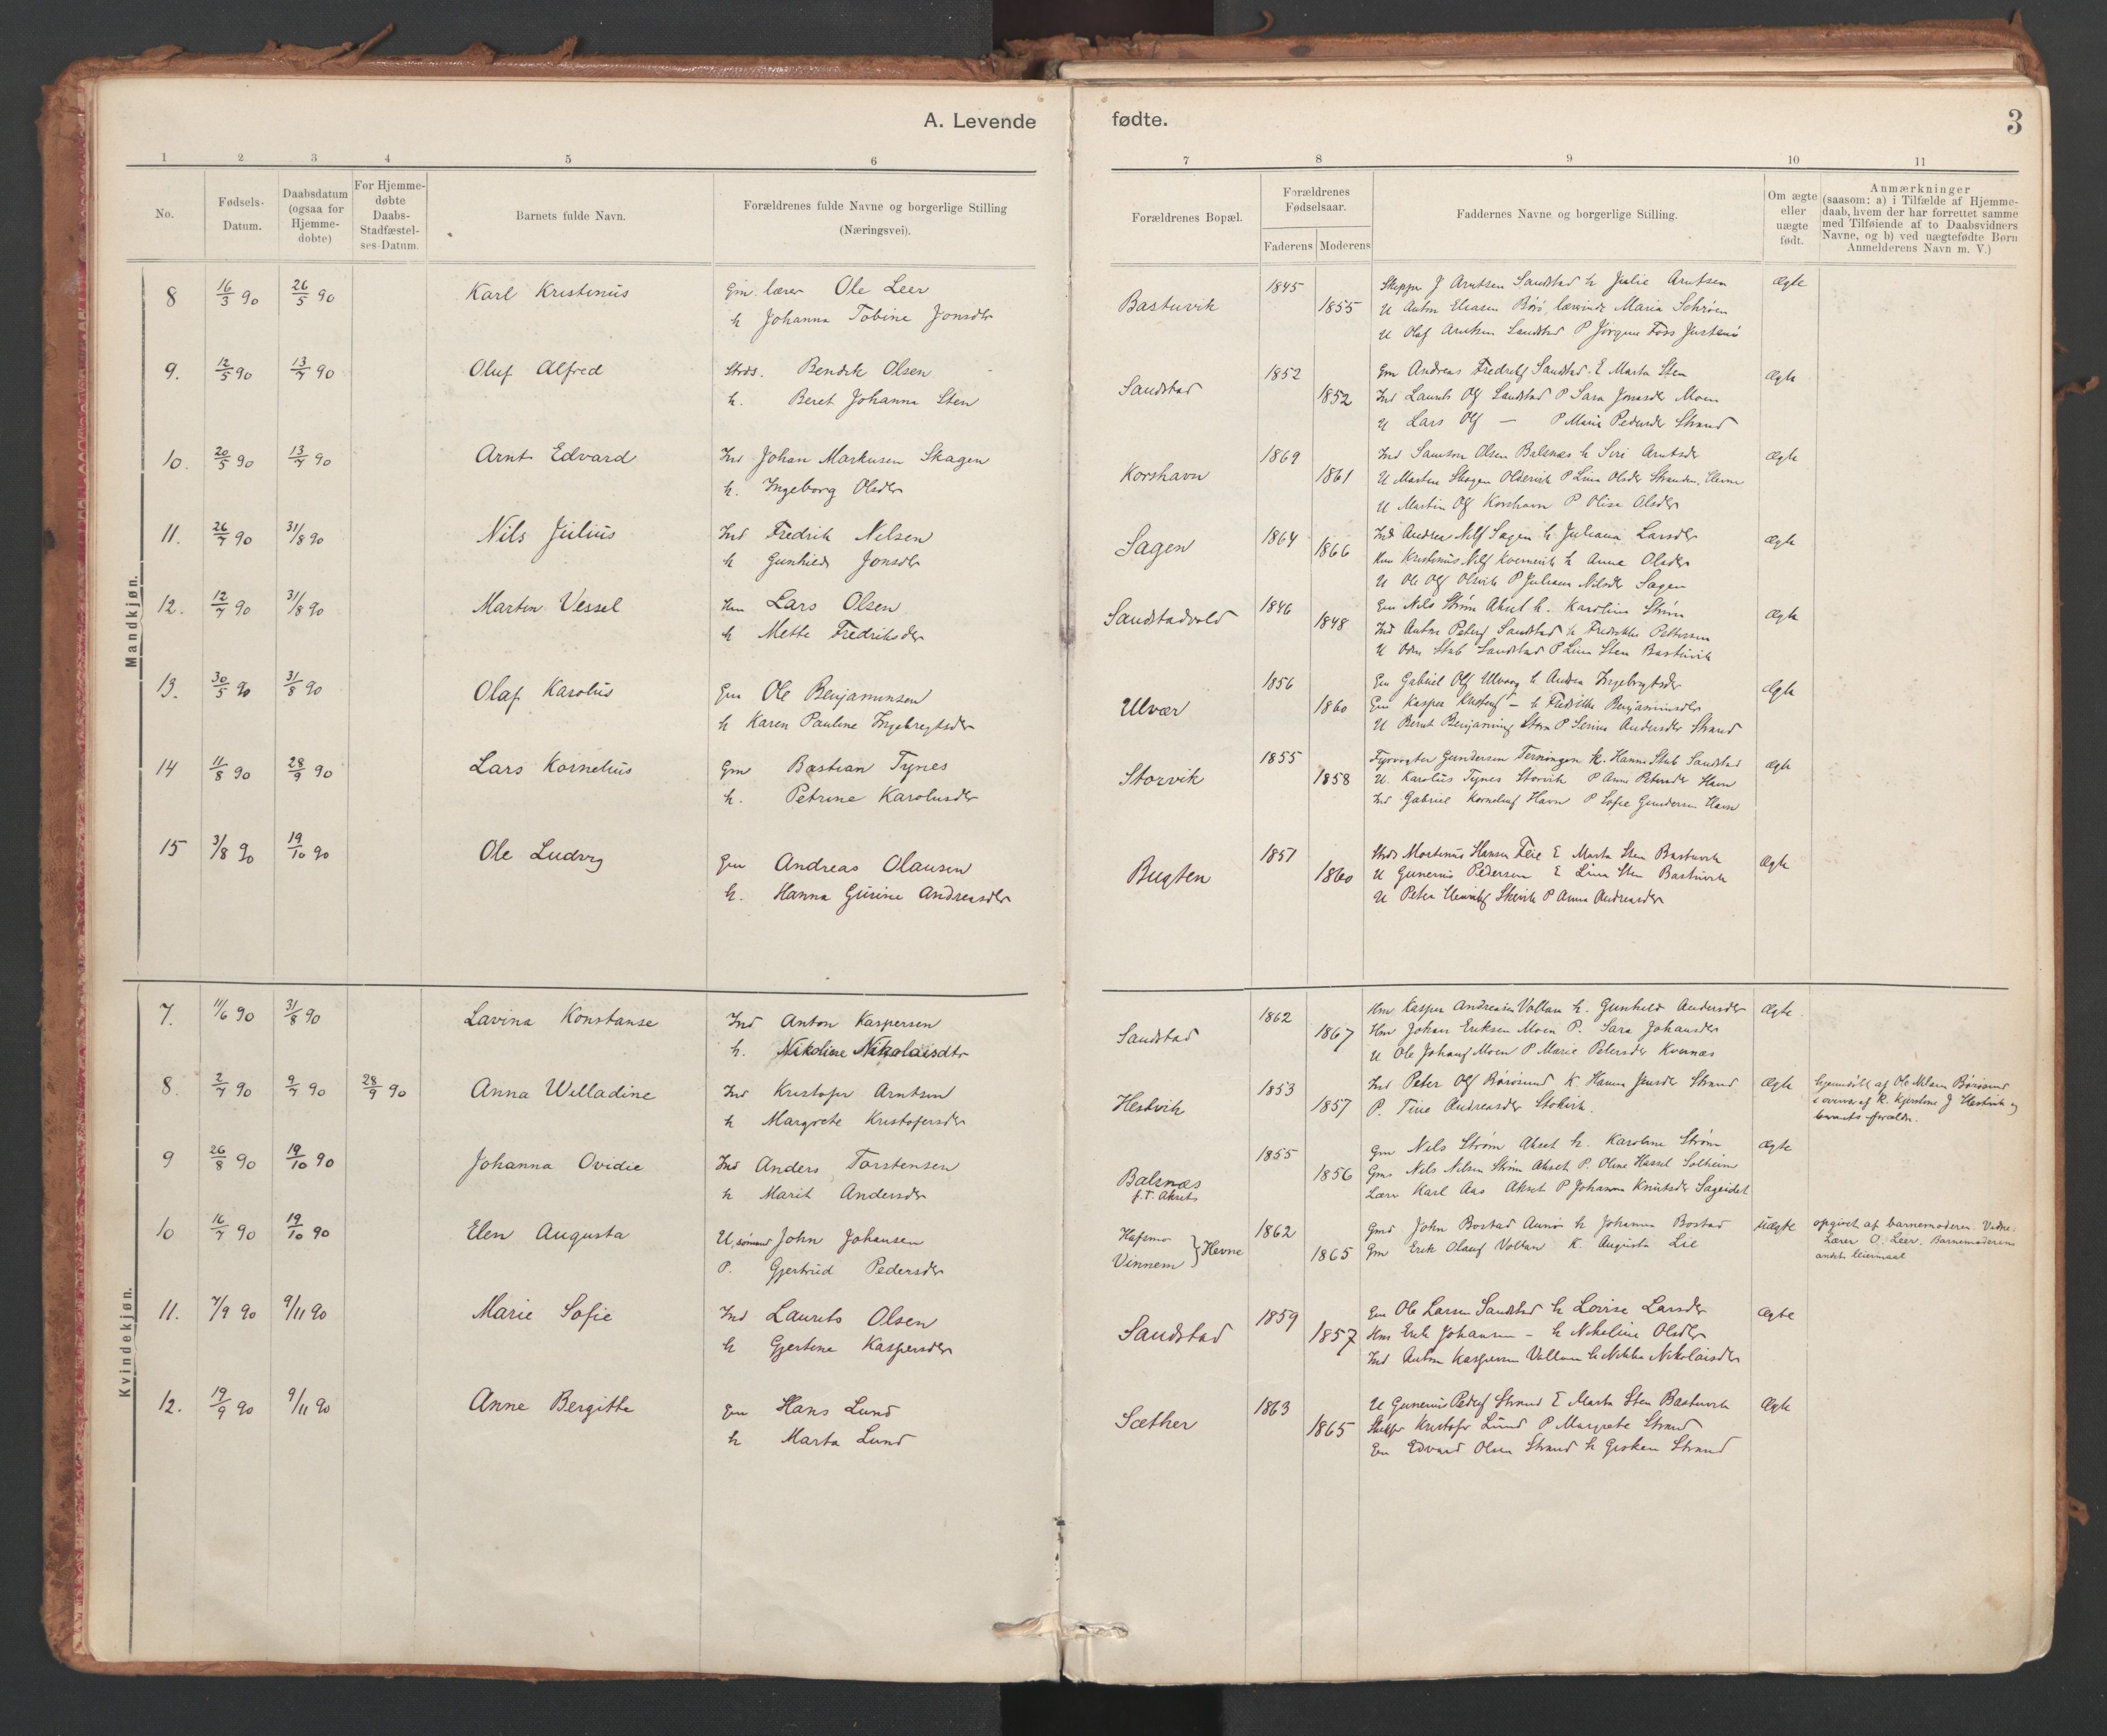 A. Levende fødte.
3
1 2 3 4 5 6 7 8 9 10 11
No.
Fødsels-Datum.
Daabsdatum (ogsaa for Hjemme-dobte)
For Hjemme-døbte Daabs-Stadfæstel-ses-Datum.
Barnets fulde Navn.
Forældrenes fulde Navne og borgerlige Stilling (Næringsvei).
Forældrenes Bopæl.
Forældrenes Fødselsaar.
Faderens Moderens
Faddernes Navne og borgerlige Stilling.
Om ægte eller uægte født.
Anmærkninger
(saasom: a) i Tilfælde af Hjemme-
daab, hvem der har forrettet samme
med Tilføiende af to Daabsvidners
Navne, og b) ved uægtefødte Børn
Anmelderens Navn m. V.)
Mandkjøn.
8 16/3 90 26/5 90 Karl Kristinus Gm. lærer Ole Leer Bastuvik 1845 Ægte
h Johanna Tobine Jonsdtr 1855
9. 12/5 90 13/7 90 Oluf Alfred Strds. Bendik Olsen Sandstad 1852 Em Andreas Fredrikf Sandstad E Marta Sten Ægte
h. Beret Johanna Sten 1852 Ind Laurits Olf Sandstad P Sara Jonasdr Moen
U Lars Olf — P Marie Pedersdr Strand
10. 20/5 90 13/7 90 Arnt Edvard Ind Johan Markusen Skagen Korshavn 1869 Ind Samson Olsen Balsnæs h Siri Arntsdr Ægte
h. Ingeborg Olsdr 1861
U Martin Olf Korshavn P Olise Olsdr
11. 26/7 90 31/8 90 Nils Julius Ind Fredrik Nilsen Sagen 1864 Ind Andreas Nilf Sagen h. Juliana Larsdr Ægte
h Gunhild Jonsdr 1866 h Anna Olsdr
U Ole Olf P Juliana Nilsdr Sagen
12. 12/7 90 31/8 90 Martin Vessel Hm Lars Olsen Sandstadvold 1846 Gm Nils Strøm Akset h. Karoline Strøm Ægte
h Mette Fredriksdr 1848 Ind Anton Petersf Sandstad h Fredrikke Pettersen
U Odin Stub Sandstad P Lina Sten Bastuvik
13. 30/5 90 31/8 90 Olaf Karolus Gm Ole Benjaminsen Ulvær 1856 Gm Gabriel Olf Ulvær h Andrea Ingebrigtsdr Ægte
h Karen Pauline Ingebregtsdr 1860 Gm Kasper Kristoff — h Fredrikke Benjaminsdr
U Bernt Benjaminsf P Serina Andersdr Strand
14 11/8 90 28/9 90 Lars Kornelius Gm Bastian Tynes Storvik 1855 Fyrvogter Gundersen Terningen K. Hanna Stub Sandstad Ægte
h. Petrine Karolusdr 1858 U. Karolus Tynes Storvik P Anna Petersdr Havn
Ind Gabriel Kornelinsf Havn P Sofie Gundersen Havn
15 3/8 90 19/10 90 Ole Ludvig Gm Andreas Olausen Bugten 1857 Strds Martinus Hansen Feie E Marta Sten Bastuvik Ægte
h. Hanna Gurine Andreasdr 1860 U Gunerius Pedersen E Lina Sten Bastuvik
U Peter Henrikf P Anna Andreasdr
Kvindekjøn.
7. 11/6 90 31/8 90 Lavina Konstanse Ind Anton Kaspersen Sandstad 1862 Hm Kasper Andreasen Vollan h. Gunhild Andersdr Ægte.
h. Nikoline Nikolaisdtr 1867 Hm Johan Eriksen Moen P. Sara Johansdr
U Ole Johansf Moen P Marie Petersdr Kvernæs
8. 2/7 90 9/7 90 28/9 90 Anna Willadine Ind Kristofer Arntsen Hestvik 1853 Ind Peter Olf Børøsund K. Hanna Jensdr Strand Ægte hjemmdøbt af Ole Nilsen Børøsund
h Margrete Kristofersdr 1857 P. Tina Andreasdr i overvær af K. Kjerstine J Hestvik og
barnets forældre.
9 26/8 90 19/10 90 Johanna Ovidie Ind Anders Torstensen Balsnæs 1855 Gm Nils Strøm Akset h. Karoline Strøm Ægte
h Marit Andersdr f.T. Akset 1856 Gms Nils Nilsen Strøm Akset P. Oline Hassel Solheim
Lærer Karl Aas Akset P Johanna Knutsdr Sageidet
10 16/7 90 19/10 90 Elen Augusta U, sømand John Johansen Hafsmo } Hevne 1862 Gmd John Bostad Aunø h Johanna Bostad uægte opgivet af barnemoderen. Vidne:
P. Gjertrud Pedersdr Vinnem 1865 Gm Erik Olausf Vollan K. Augusta Lie Lærer O. Leer. Barnemoderens
andet leiermaal
11. 7/9 90 9/11 90 Marie Sofie Ind Laurits Olsen Sandstad 1859 Gm Ole Larsen Sandstad h Lovise Larsdr Ægte
h Gjertine Kaspersdr 1857 Hm Erik Johansen — h Nikoline Olsdr
Ind Anton Kaspersen Vollan h Nikka Nikolaisdr
12. 19/9 90 9/11 90 Anne Bergitte Gm Hans Lund Sæther 1863 U Gunerius Pedersf Strand E Marta Sten Bastuvik Ægte
h Marta Lund 1865 Skipper Kristofer Lund P Margrete Strand
Em Edvard Olsen Strand h Gisken Strand